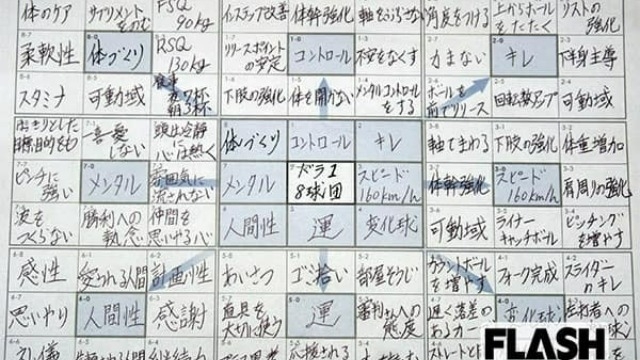 体のケア
サプリメントをのむ
FSQ 90kg
インステップ改善
体幹強化
軸をぶらさない
角度をつける
上からボールをたたく
リストの強化
柔軟性
体づくり
RSQ 130kg
リリースポイントの安定
コントロール
不安をなくす
力まない
キレ
下半身主導
スタミナ
可動域
夜7杯 朝3杯
下肢の強化
体を開かない
メンタルコントロールをする
ボールを前でリリース
回転数アップ
可動域
はっきりとした目標、目的をもつ
一喜一憂しない
頭は冷静に心は熱く
体づくり
コントロール
キレ
軸でまわる
下肢の強化
体重増加
ピンチに強い
メンタル
雰囲気に流されない
メンタル
ドラ1 8球団
スピード 160km/h
体幹強化
スピード 160km/h
肩周りの強化
波をつくらない
勝利への執念
仲間を思いやる心
人間性
運
変化球
可動域
ライナーキャッチボール
ピッチングを増やす
感性
愛される人間
計画性
あいさつ
ゴミ拾い
部屋そうじ
カウントボールを増やす
フォーク完成
スライダーのキレ
思いやり
人間性
感謝
道具を大切に使う
運
審判さんへの態度
遅く落差のあるカーブ
変化球
礼儀
プラス思考
応援される
FLASH